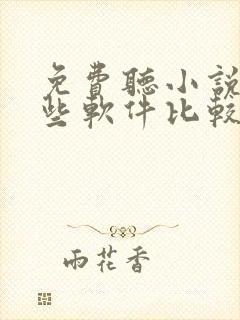 免費聽小說
些軟件比較
雨花香